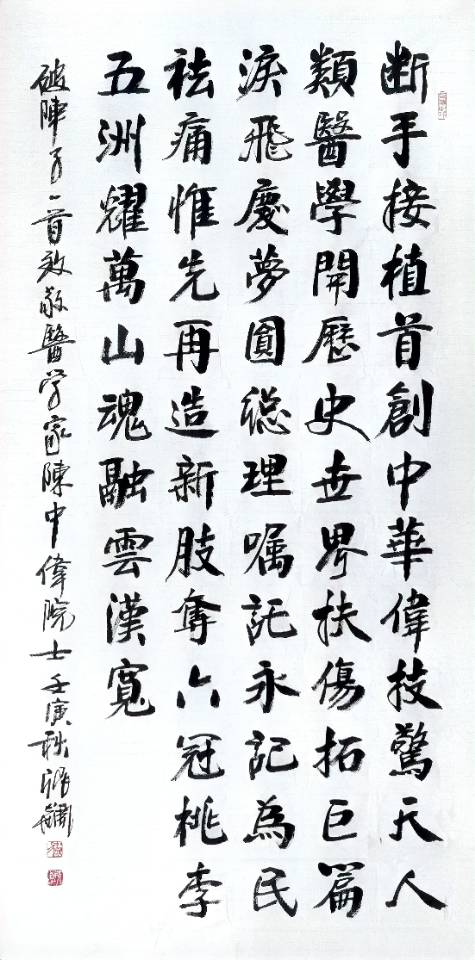 断手接植首創中華偉技驚天人
類醫學開歷史世界扶傷拓巨篇
淚飛慶夢圓總理嘱託永記為民
祛痛惟先再造新肢奪六冠桃李
五洲耀萬山魂融雲漢寬
破陣子一首致敬醫学家陳中偉院士壬寅秋